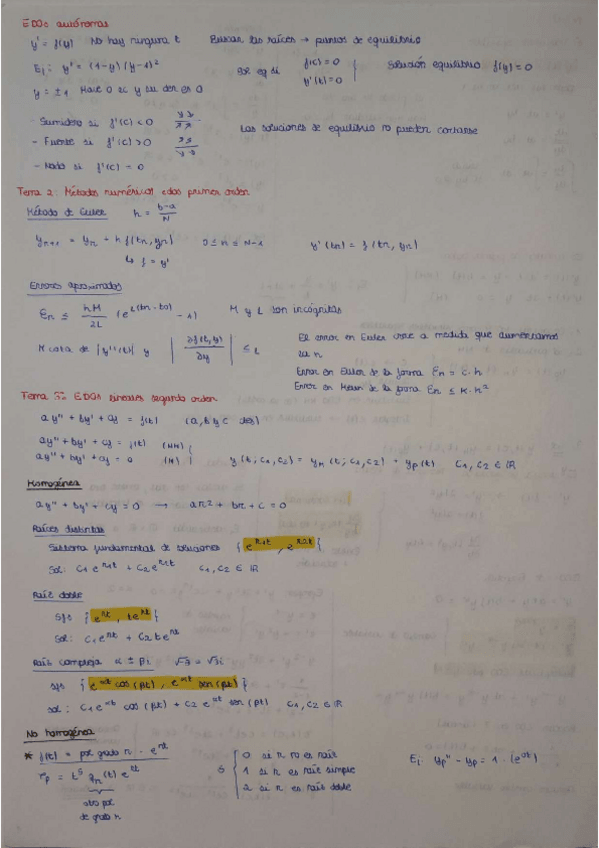 EDOs autónomas
y' = f(y) No hay ninguna t Buscar las raíces → puntos de equilibrio
Ej: y' = (1-y)(y-1)² Sol eq si f(c) = 0 Solución equilibrio f(y) = 0
y'(t) = 0
y = ±1 Hace 0 si y su der es 0
- Sumidero si f'(c) < 0
- Fuente si f'(c) > 0 Las soluciones de equilibrio no pueden cortarse
- Nodo si f'(c) = 0
Tema 2: Métodos numéricos edos primer orden
Método de Euler h = b-a/N
yn+1 = yn + h f(tn, yn) 0 ≤ n ≤ N-1 y'(tn) = f(tn, yn)
↳ f = y'
Errores aproximados
En ≤ hM/2L (e^L(tn-t0) - 1) M y L son incógnitas
M cota de |y''(t)| y |∂f(t,y)/∂y| ≤ L
El error en Euler crece a medida que aumentamos
la n
Error en Euler de la forma En = c·h
Error en Heun de la forma En ≤ K·h²
Tema 3: EDOs lineales segundo orden
ay'' + by' + cy = f(t) (a, b y c des)
ay'' + by' + cy = f(t) (NH)
ay'' + by' + cy = 0 (H) y(t; c1, c2) = yh(t; c1, c2) + yp(t) c1, c2 ∈ ℝ
Homogénea
ay'' + by' + cy = 0 → ar² + br + c = 0
Raíces distintas
Sistema fundamental de soluciones {e^r1t, e^r2t}
Sol: c1 e^r1t + c2 e^r2t c1, c2 ∈ ℝ
Raíz doble
sfs {e^rt, te^rt}
Sol: c1 e^rt + c2 t e^rt
Raíz compleja α ± βi √-3 = √3i
sfs {e^αt cos(βt), e^αt sen(βt)}
sol: c1 e^αt cos(βt) + c2 e^αt sen(βt) c1, c2 ∈ ℝ
No homogénea
* f(t) = pol grado n · e^rt
yp = t^s qn(t) e^rt
s { 0 si r no es raíz
1 si r es raíz simple
2 si r es raíz doble
Ej: yp'' - yp = 1 · (e^0t)
otro pol
de grado n